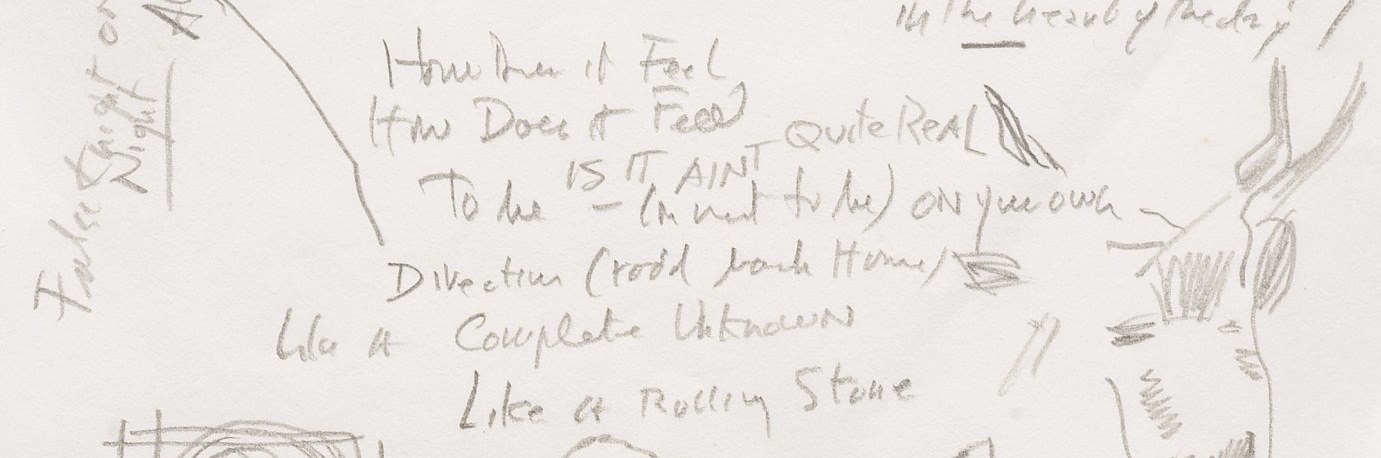 in the heart of the day
How Does it Feel
How Does it Feel
QuiTe ReAL
IS IT AINT
To be – (or not to be) ON your own
Direction (road back Home)
Like a Complete UnknowN
Like a Rolling Stone
Night